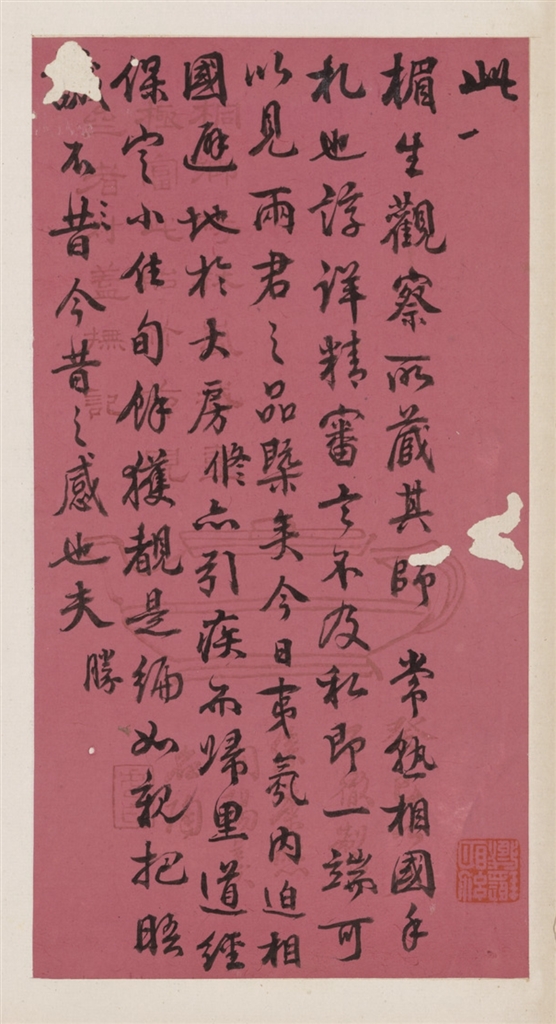 此一
楣生觀察所藏其師 常熟相國手
札也諄詳精審言不及私即一端可
以見兩君之品槩矣今日夷氛內迫相
國避地於大房修亦引疾而歸里道經
保定小住旬餘獲覩是編如親把晤
不昔今昔之感也夫
勝